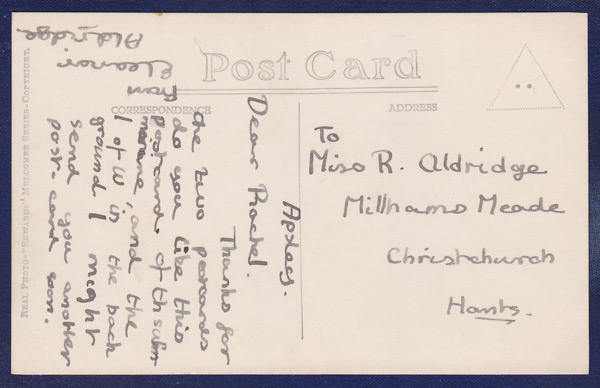 Post Card
CORRESPONDENCE
ADDRESS
REAL PHOTO-"REWARDS" MELCOMBE SERIES-COPYRIGHT.
To
Miss R. Aldridge
Millhams Meade
Christchurch
Hants.
Apsley.
Dear Rachel.
Thanks for
the two postcards
do you like this
postcard of th subm
marene, and the
I of W in the back
ground I might
send you another
post-card soon.
from
Eleanor
Aldridge